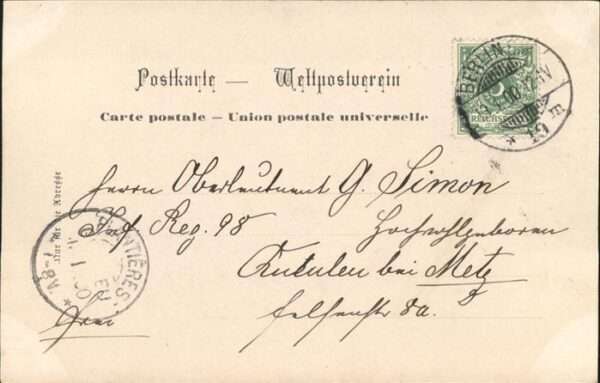 Postkarte — Weltpostverein
Carte postale — Union postale universelle
Nur für die Adresse
BERLIN
5
REICHSPOST
Herrn Oberleutnant G. Simon
Inf. Reg. 98
Hochwohlgeboren
Queuleu bei Metz
8a.